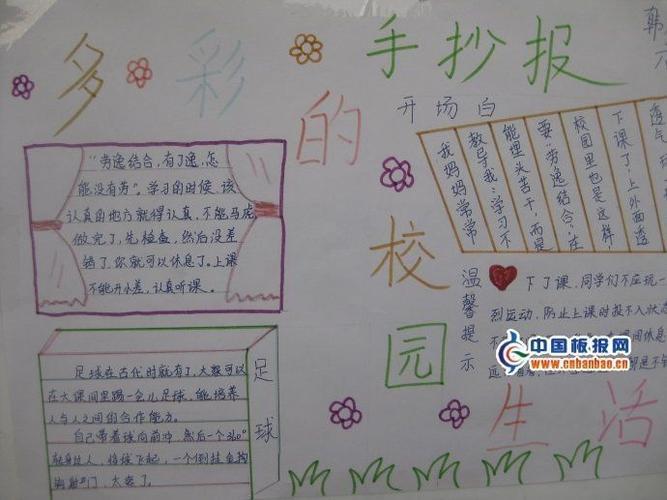 多彩的校园生活
手抄报
韩
开场白
我妈妈常常
教导我:学习不
能埋头苦干,而是
要“劳逸结合”,在
校园里也是这样,
下课了,上外面透
透气
“劳逸结合,有了逸,怎
能没有劳”。学习的时候,该
认真的地方就得认真,不能马虎
做完了,先检查,然后没差
错了,你就可以休息了。上课
不能开小差,认真听课。
温馨提示
下了课,同学们不应玩一
烈运动,防止上课时投不入状态
足球
足球在古代时就有了,大家可以
在大课间里踢一会儿足球,能培养
人与人之间的合作能力。
自己带着球向前冲,然后一个360°
转身过人,将球飞起,一个倒挂金钩
射门,太爽了。
中国板报网
www.cnbanbao.cn